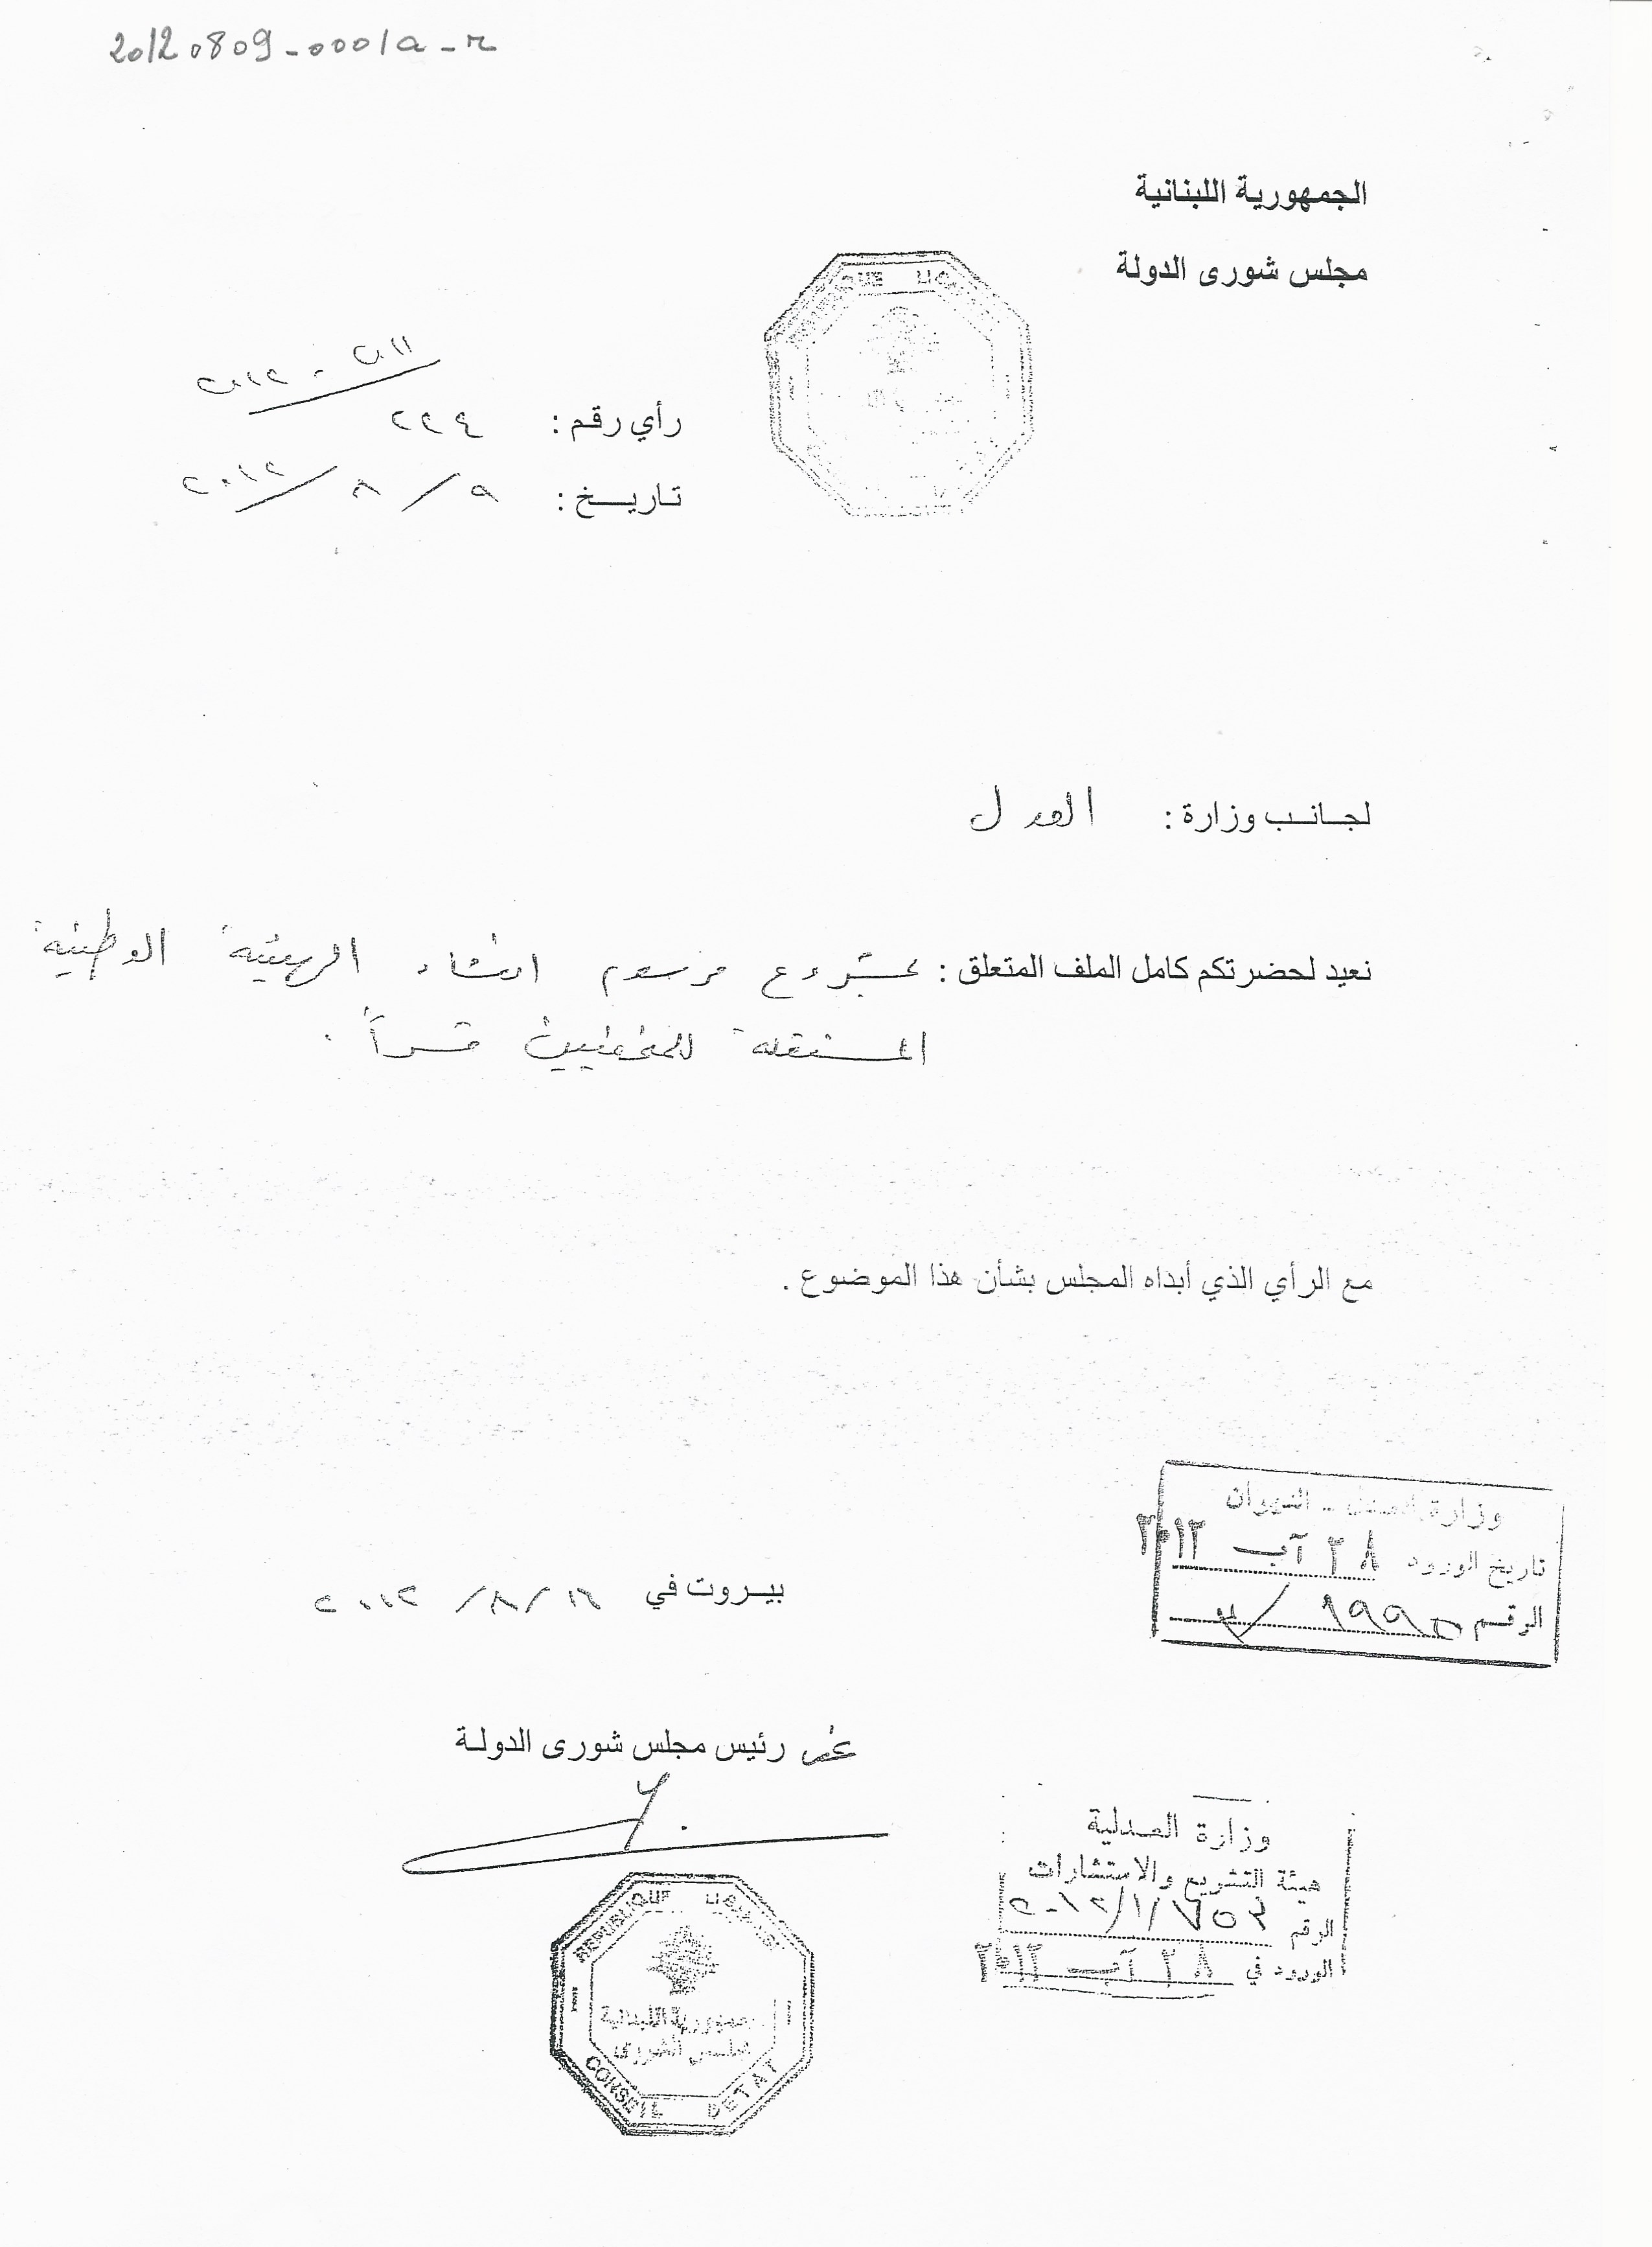 20120809-0001a-r
الجمهورية اللبنانية
مجلس شورى الدولة
REPUBLIQUE
٢٠١١ - ٢٠١٢
رأي رقم : ٢٢٤
تاريخ : ٩ / ٨ / ٢٠١٢
لجانب وزارة : العدل
نعيد لحضرتكم كامل الملف المتعلق : بمشروع مرسوم انشاء الهيئة الوطنية
المستقلة للمخفيين قسراً .
مع الرأي الذي أبداه المجلس بشأن هذا الموضوع .
وزارة العدل - الديوان
تاريخ الورود ٢٨ آب ٢٠١٢
الرقم / ٣
بيروت في ١٦ / ٨ / ٢٠١٢
عن رئيس مجلس شورى الدولة
وزارة العدلية
هيئة التشريع والاستشارات
الرقم ٧٥٣ / ١ / ٢٠١٢
الورود في ٢٨ آب ٢٠١٢
REPUBLIQUE LIBANAISE
الجمهورية اللبنانية
مجلس الشورى
CONSEIL DETAT